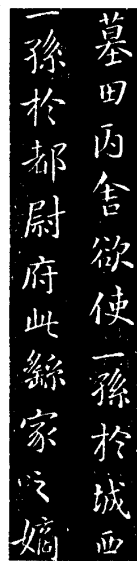 墓田丙舍欲使一孫於城西
一孫於都尉府此繇家之嫡